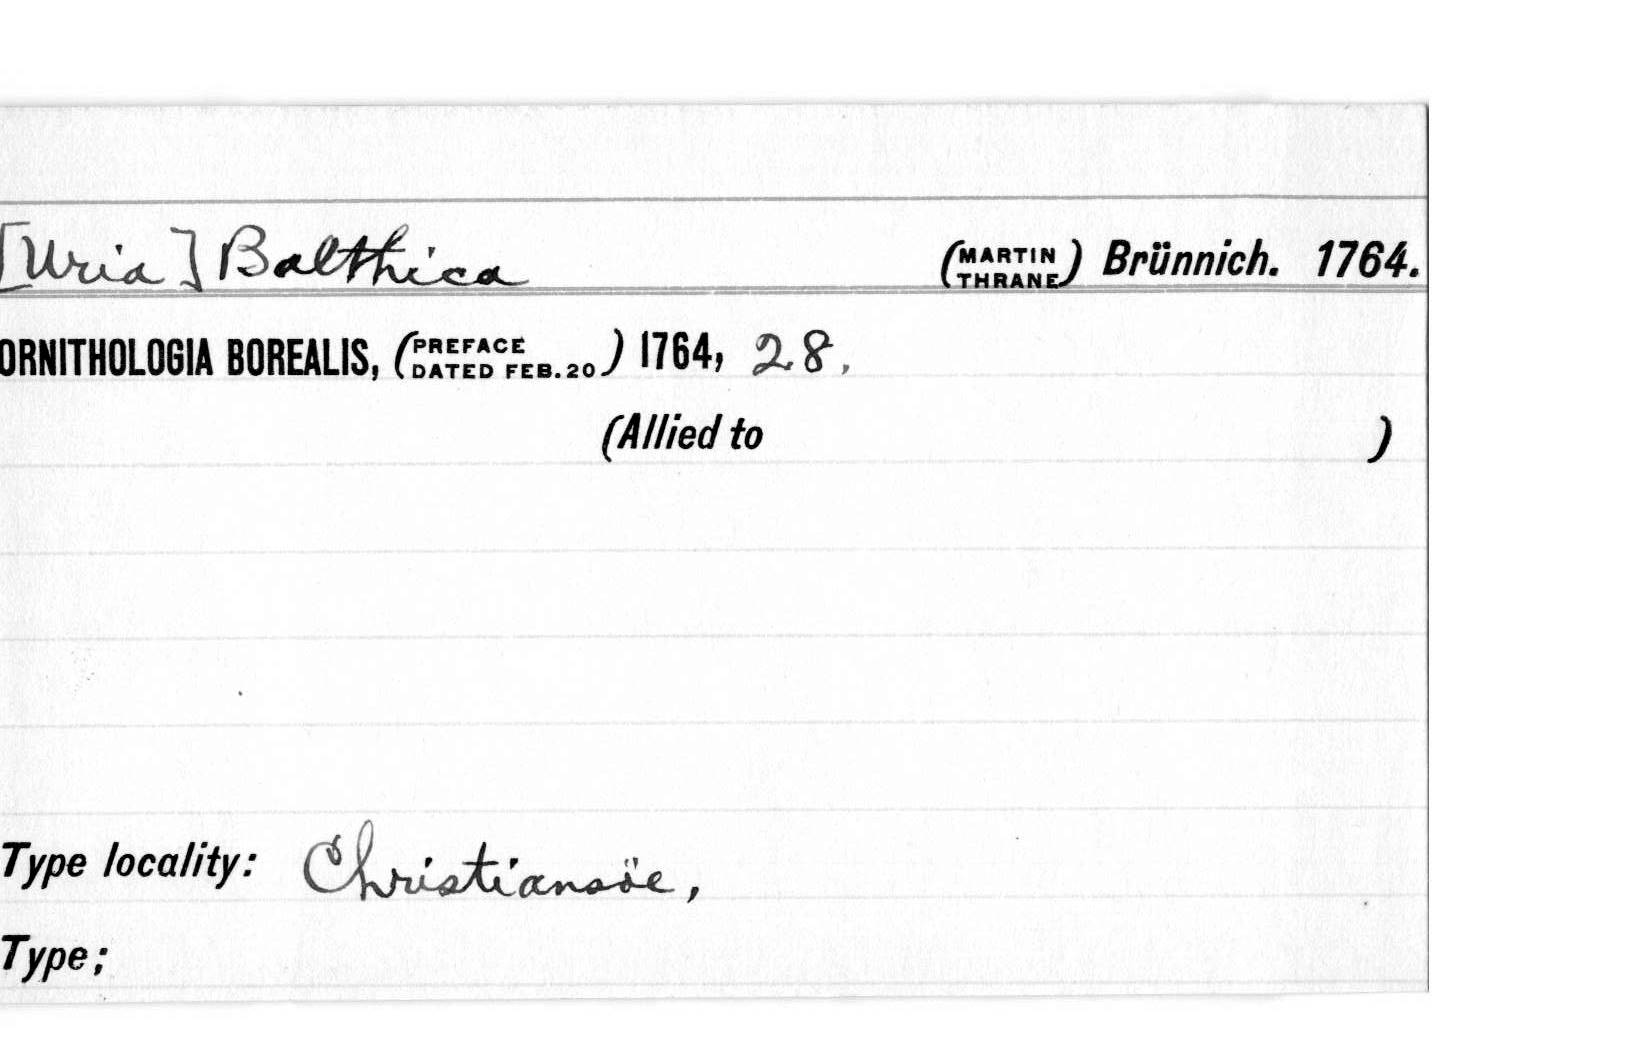 [Uria] Balthica (MARTIN THRANE) Brünnich. 1764.
ORNITHOLOGIA BOREALIS, (PREFACE DATED FEB.20) 1764, 28,
(Allied to )
Type locality: Christiansöe,
Type;